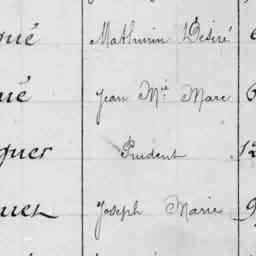 qué Mathurin Désiré 6
ué Jean M.ie Marc 6
quer Prudent 12
uet Joseph Marie 9